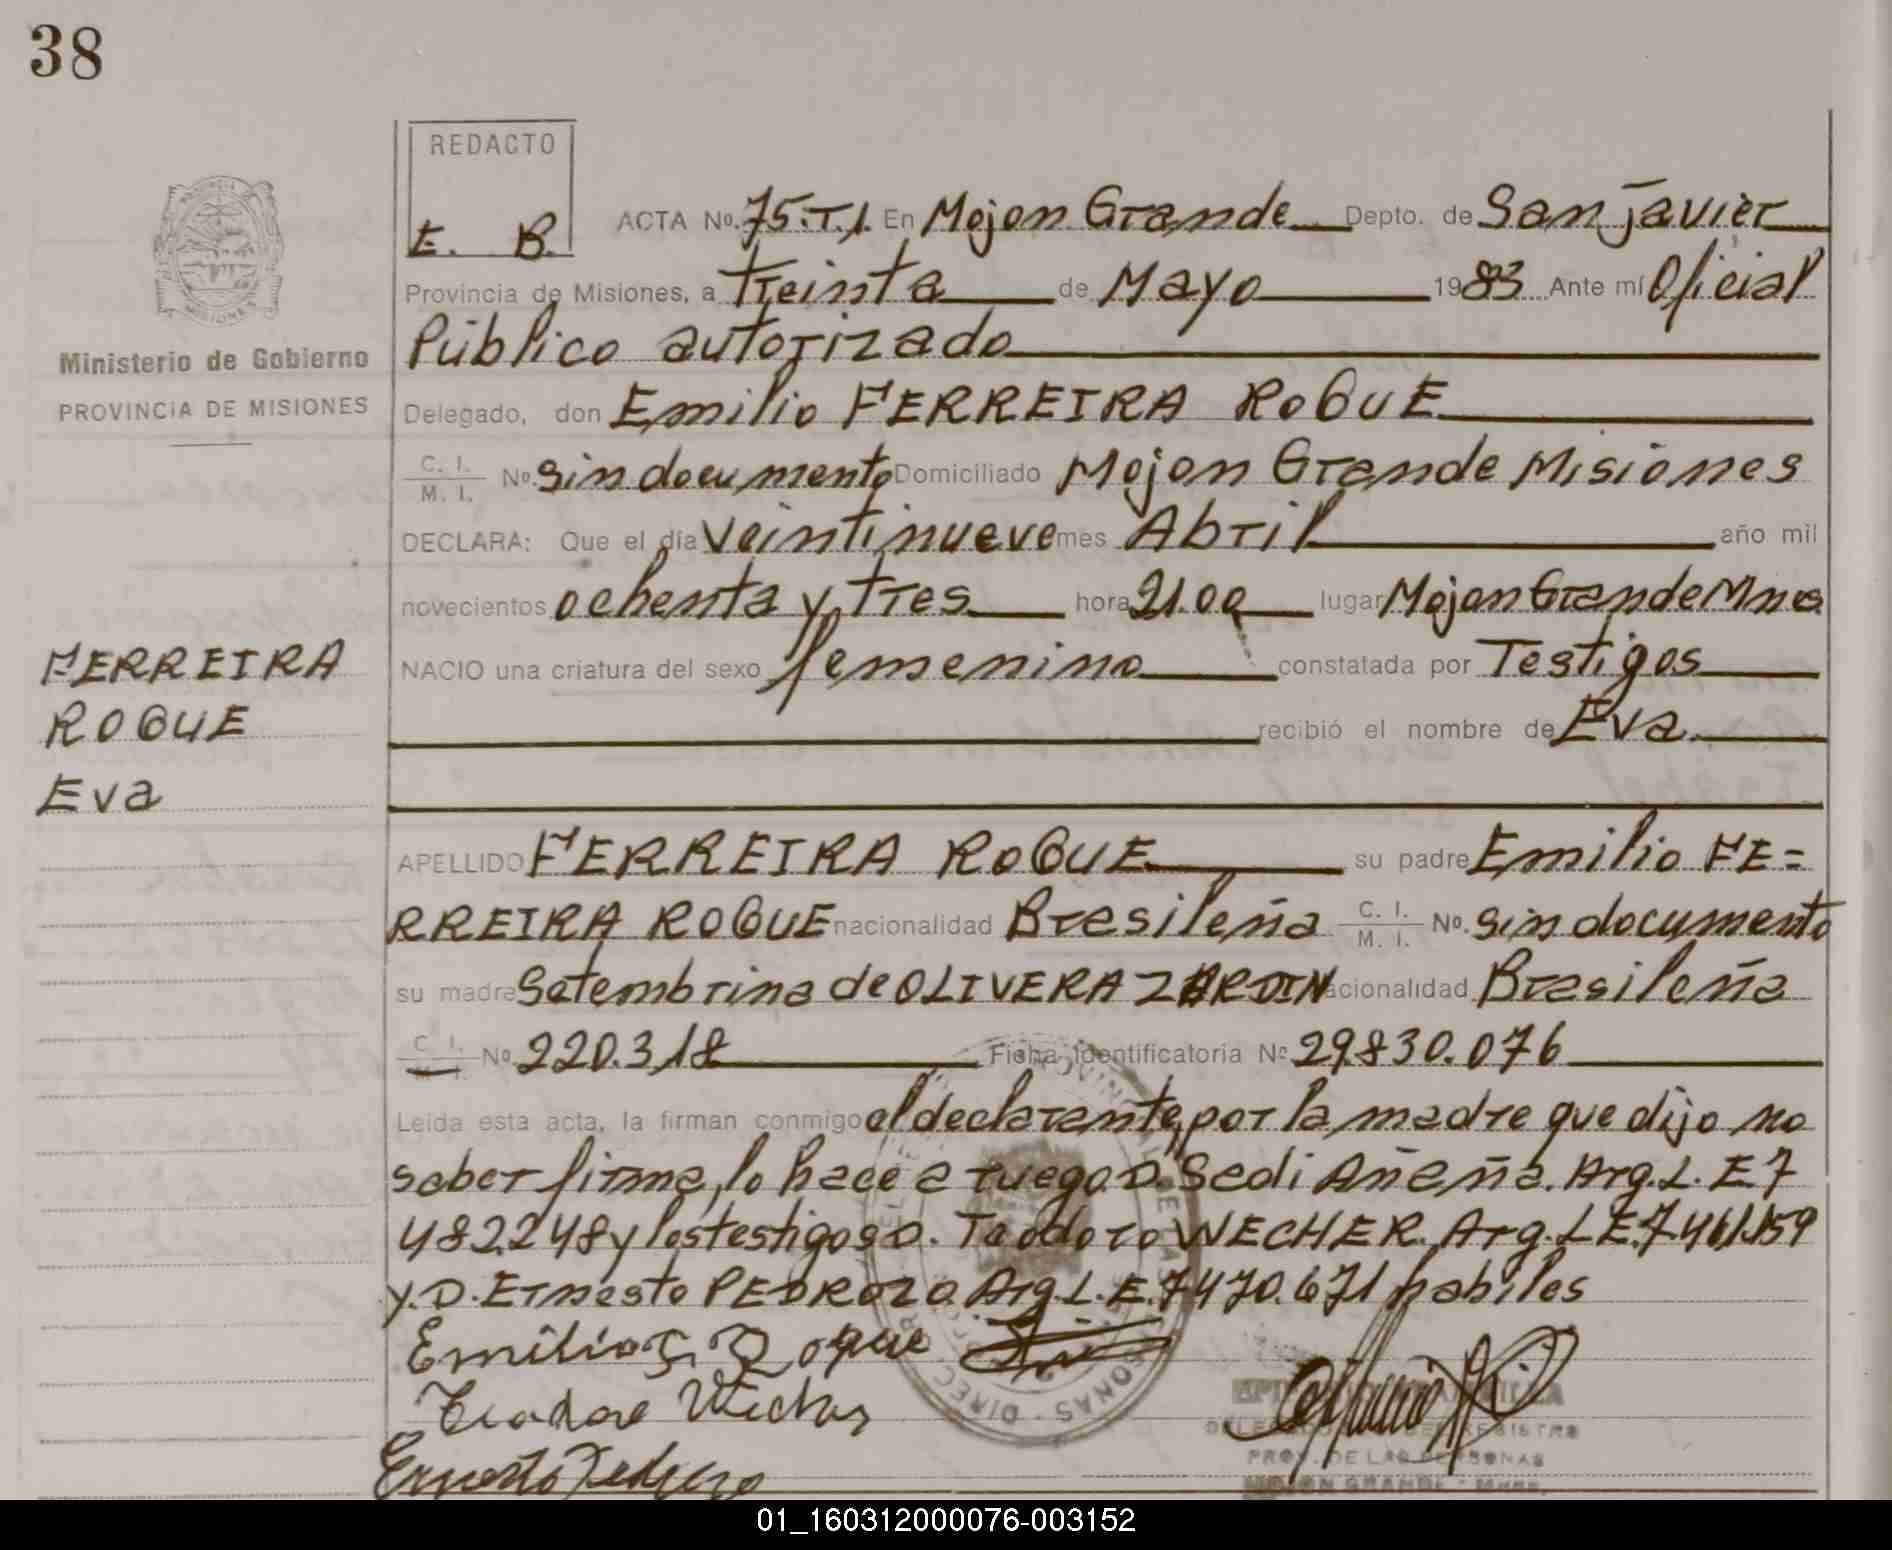 38
REDACTO
E. B.
ACTA No. 75.T.1. En Mojon Grande Depto. de San Javier
Provincia de Misiones, a Treinta de Mayo 1983 Ante mí Oficial
Público autorizado
Ministerio de Gobierno
PROVINCIA DE MISIONES
Delegado, don Emilio FERREIRA ROQUE
C. I. / M. I. No. sin documento Domiciliado Mojon Grande Misiones
DECLARA: Que el día veintinueve mes Abril año mil
novecientos ochenta y Tres hora 21.00 lugar Mojon Grande Mnes
NACIO una criatura del sexo femenino constatada por Testigos
recibió el nombre de Eva.
FERREIRA
ROQUE
Eva
APELLIDO FERREIRA ROQUE su padre Emilio FE=
RREIRA ROQUE nacionalidad Bresileña C. I. / M. I. No. sin documento
su madre Setembrina de OLIVERA ZARDIN nacionalidad Brasileña
C. I. / M. I. No. 220.318 Ficha identificatoria Nº 29.830.076
Leída esta acta, la firman conmigo el declarante, por la madre que dijo no
saber firma, lo hace a ruego D. Sedi Añaña. Arg. L. E 7
482.248 y los testigos D. Teodoro WECHER. Arg. L E. 7.461.159
y. D. Ernesto PEDROZO. Arg. L. E. 7470.671 habiles
Emilio F. Roque
Teodoro Wecher
Ernesto Pedrozo
REGISTRO
PROV. DE LAS PERSONAS
MOJON GRANDE - Mnes.
01_160312000076-003152